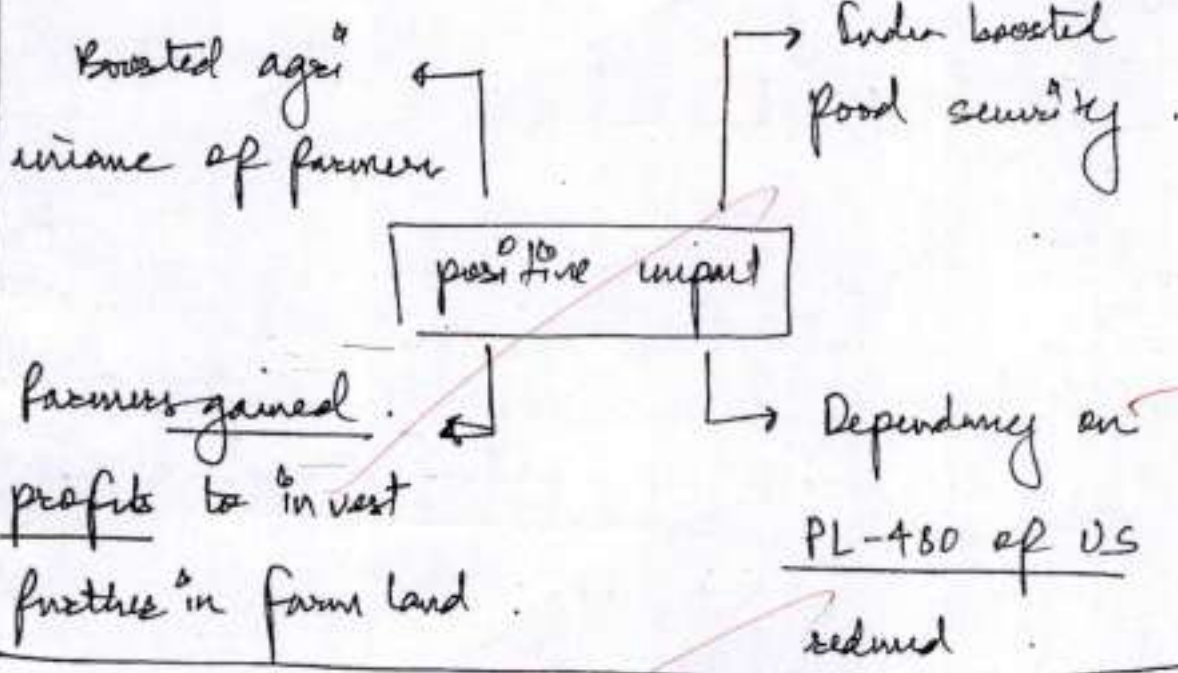 Boosted agri
income of farmers
India boosted
food security .
positive impact
farmers gained .
profits to invest
further in farm land .
Dependency on
PL-480 of US
reduced .